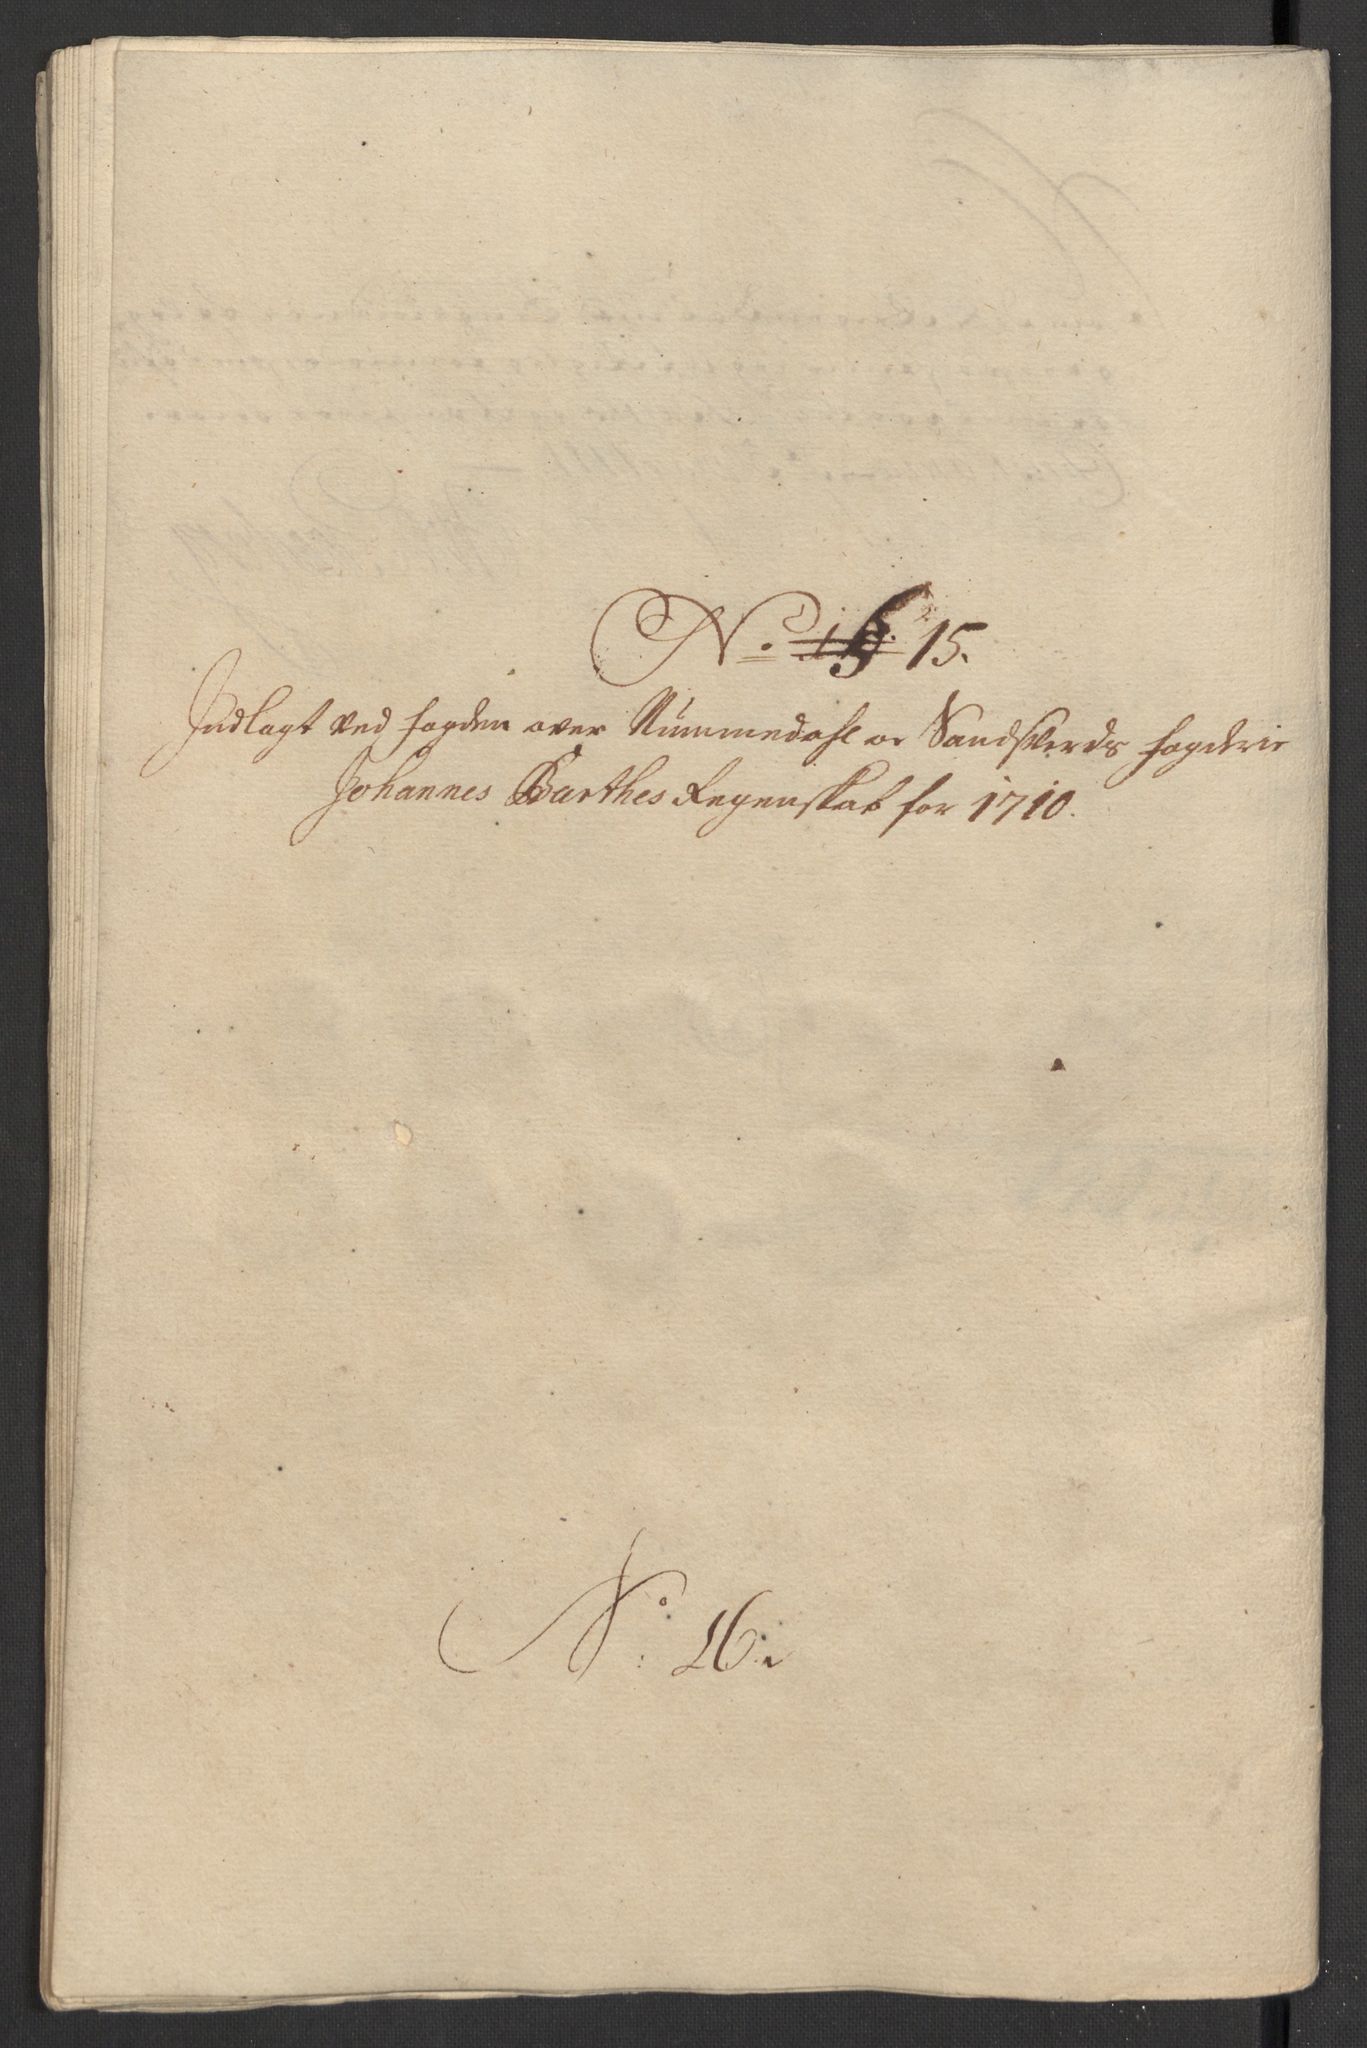 No 15.
Indlagt ved fogden over Nummedahl oc Sandsverds fogderie
Johannes Barthes Regenskab for 1710.
No: 16.